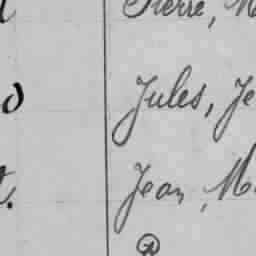 Pierre, M
Jules, Je
Jean, M